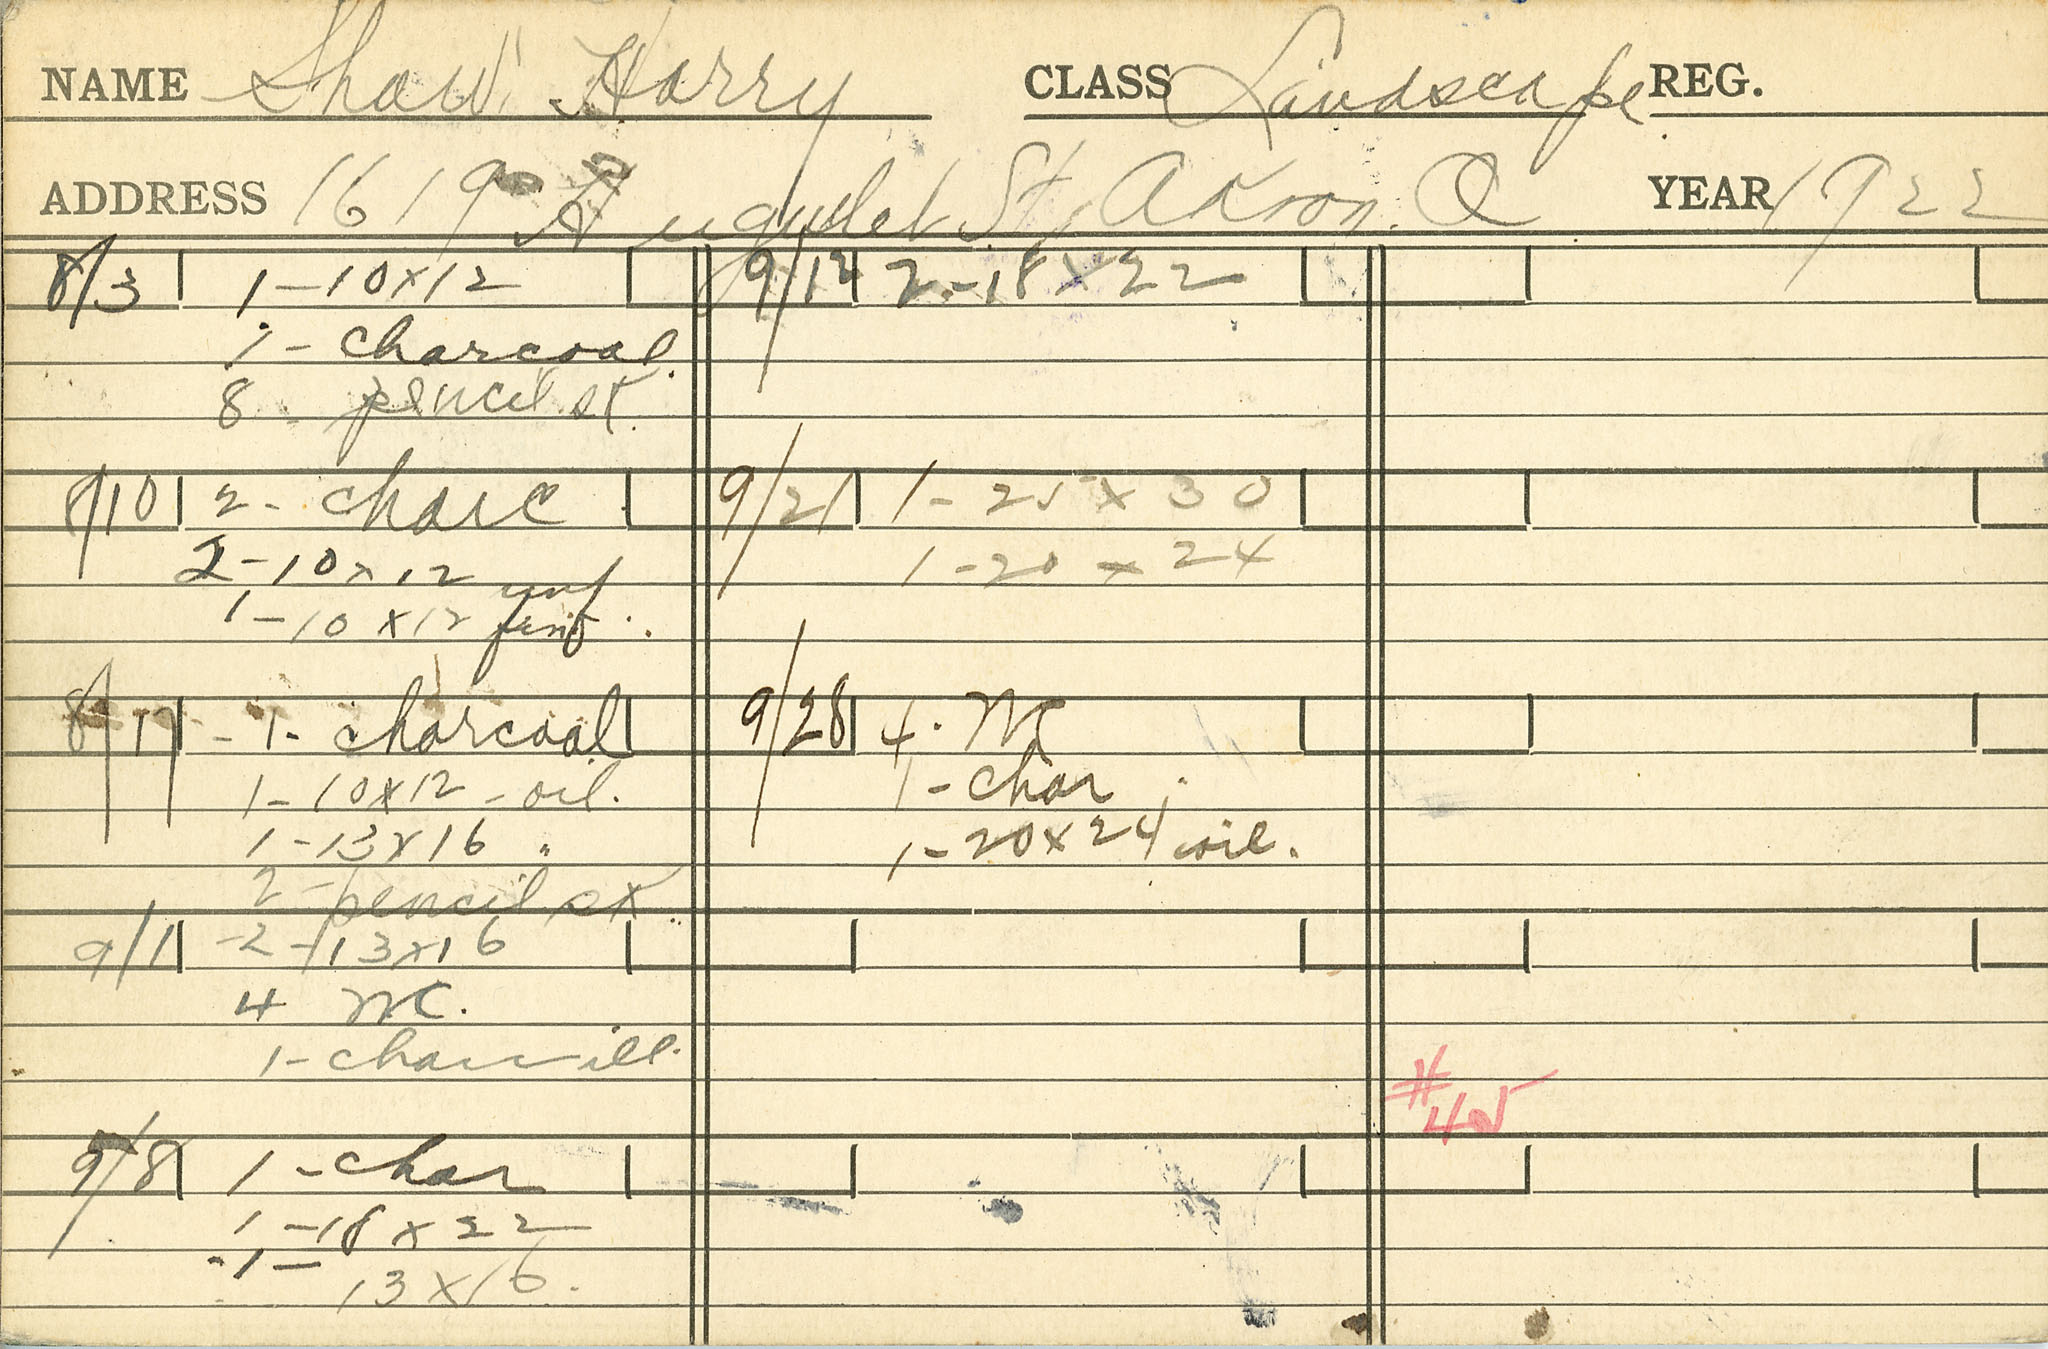 NAME Shaw, Harry CLASS Landscape REG.
ADDRESS 1619 St, Akron. O YEAR 1922
8/3 1-10x12
1- charcoal
8- pencil sk.
8/10 2- charc
2-10x12
unf
1-10x12
8/17 -1- charcoal
1-10x12 - oil.
1-13x16 "
2- pencil sk.
9/1 -2-13x16
4 WC.
1- char ill.
9/8 1-char
1-18x22
-1-
13x16.
9/14 2-18x22
9/21 1-25x30
1-20x24
9/28 4. WC
1-char
1-20x24 oil.
#
45